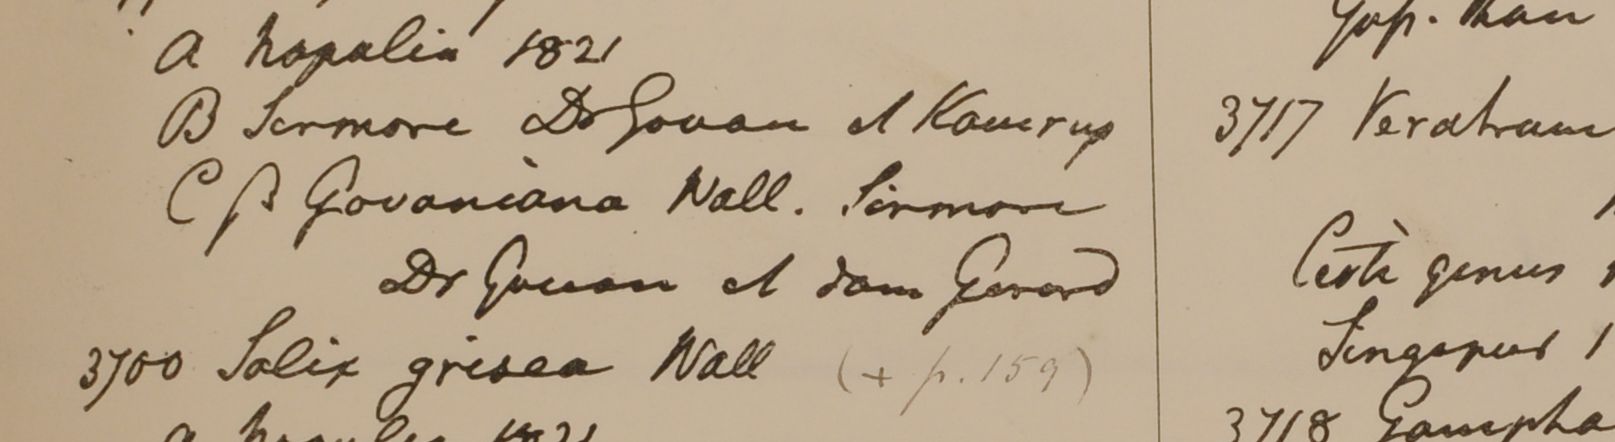 a Napalia 1821
B Sirmore Dr Govan et Kamrup
C β Govaniana Wall. Sirmore
Dr Govan et dom Gerard
3700 Salix grisea Wall (+ p. 159)
a Napalia 1821
Jap. Kau
3717 Veratrum
Certè genus
Singapur 1
3718 Gompha